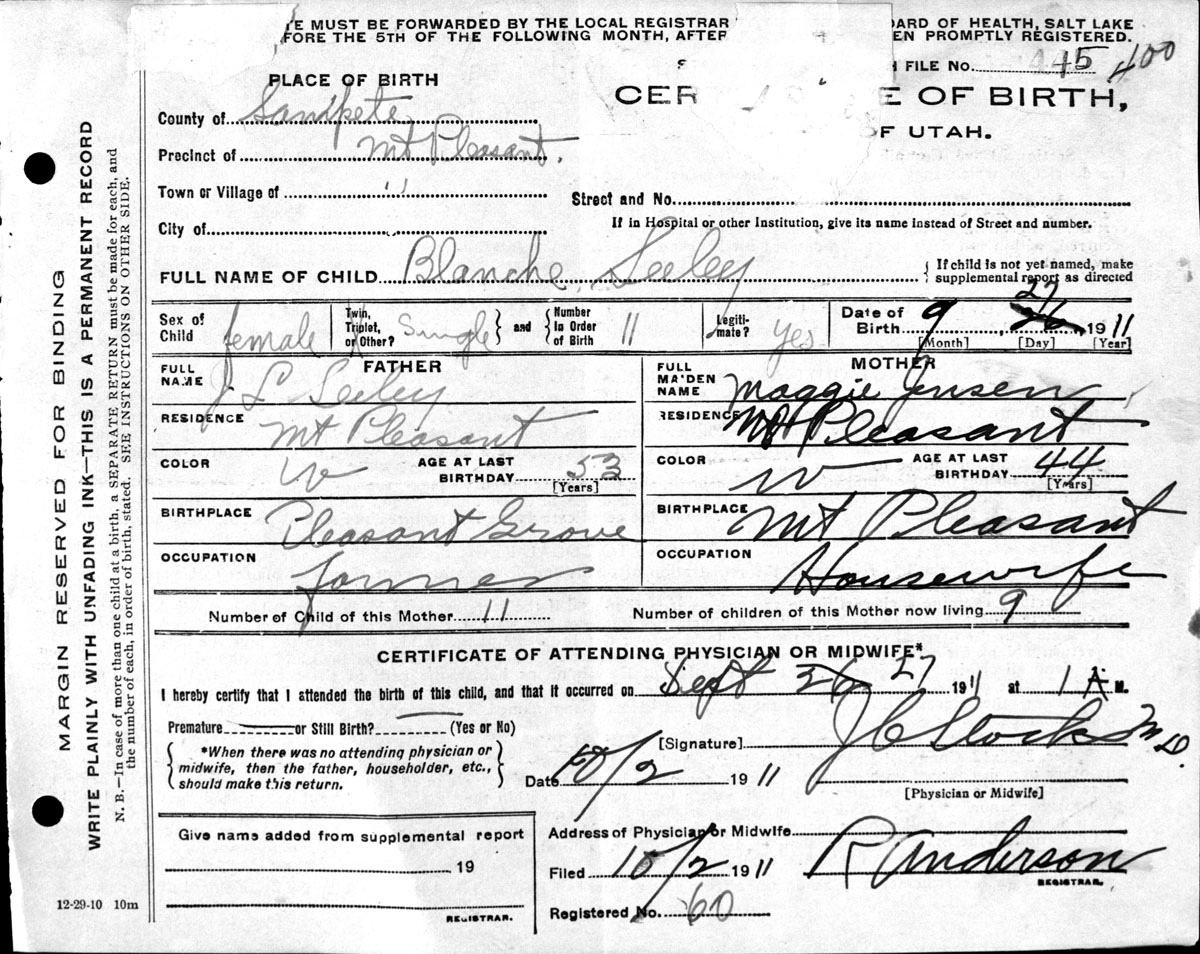 E MUST BE FORWARDED BY THE LOCAL REGISTRAR ARD OF HEALTH, SALT LAKE
FORE THE 5TH OF THE FOLLOWING MONTH, AFTER EN PROMPTLY REGISTERED.
FILE NO. 445 400
PLACE OF BIRTH
CER E OF BIRTH,
OF UTAH.
County of Sanpete
Precinct of Mt Pleasant.
Town or Village of "
Street and No.
If in Hospital or other Institution, give its name instead of Street and number.
City of
FULL NAME OF CHILD Blanche Seeley { If child is not yet named, make supplemental report as directed
Sex of Child female Twin, Triplet, or Other? Single } and { Number in Order of Birth 11 Legiti-mate? yes Date of Birth 9, 26 27 1911
[Month] [Day] [Year]
FATHER
FULL NAME J L Seeley
RESIDENCE Mt Pleasant
COLOR W AGE AT LAST BIRTHDAY 53
[Years]
BIRTHPLACE Pleasant Grove
OCCUPATION Farmer
MOTHER
FULL MAIDEN NAME Maggie Jensen
RESIDENCE Mt Pleasant
COLOR W AGE AT LAST BIRTHDAY 44
[Years]
BIRTHPLACE Mt Pleasant
OCCUPATION Housewife
Number of Child of this Mother 11 Number of children of this Mother now living 9
CERTIFICATE OF ATTENDING PHYSICIAN OR MIDWIFE*
I hereby certify that I attended the birth of this child, and that it occurred on Sept 26 27 1911 at 1 A M.
Premature or Still Birth? (Yes or No)
{ *When there was no attending physician or midwife, then the father, householder, etc., should make this return. }
[Signature] M D.
Date 10/2 1911
[Physician or Midwife]
Give name added from supplemental report
19
REGISTRAR.
Address of Physician or Midwife
Filed 10/2 1911 R Anderson
REGISTRAR.
Registered No. 60
12-29-10 10m
MARGIN RESERVED FOR BINDING
WRITE PLAINLY WITH UNFADING INK—THIS IS A PERMANENT RECORD
N. B.—In case of more than one child at a birth, a SEPARATE RETURN must be made for each, and
the number of each, in order of birth, stated. SEE INSTRUCTIONS ON OTHER SIDE.